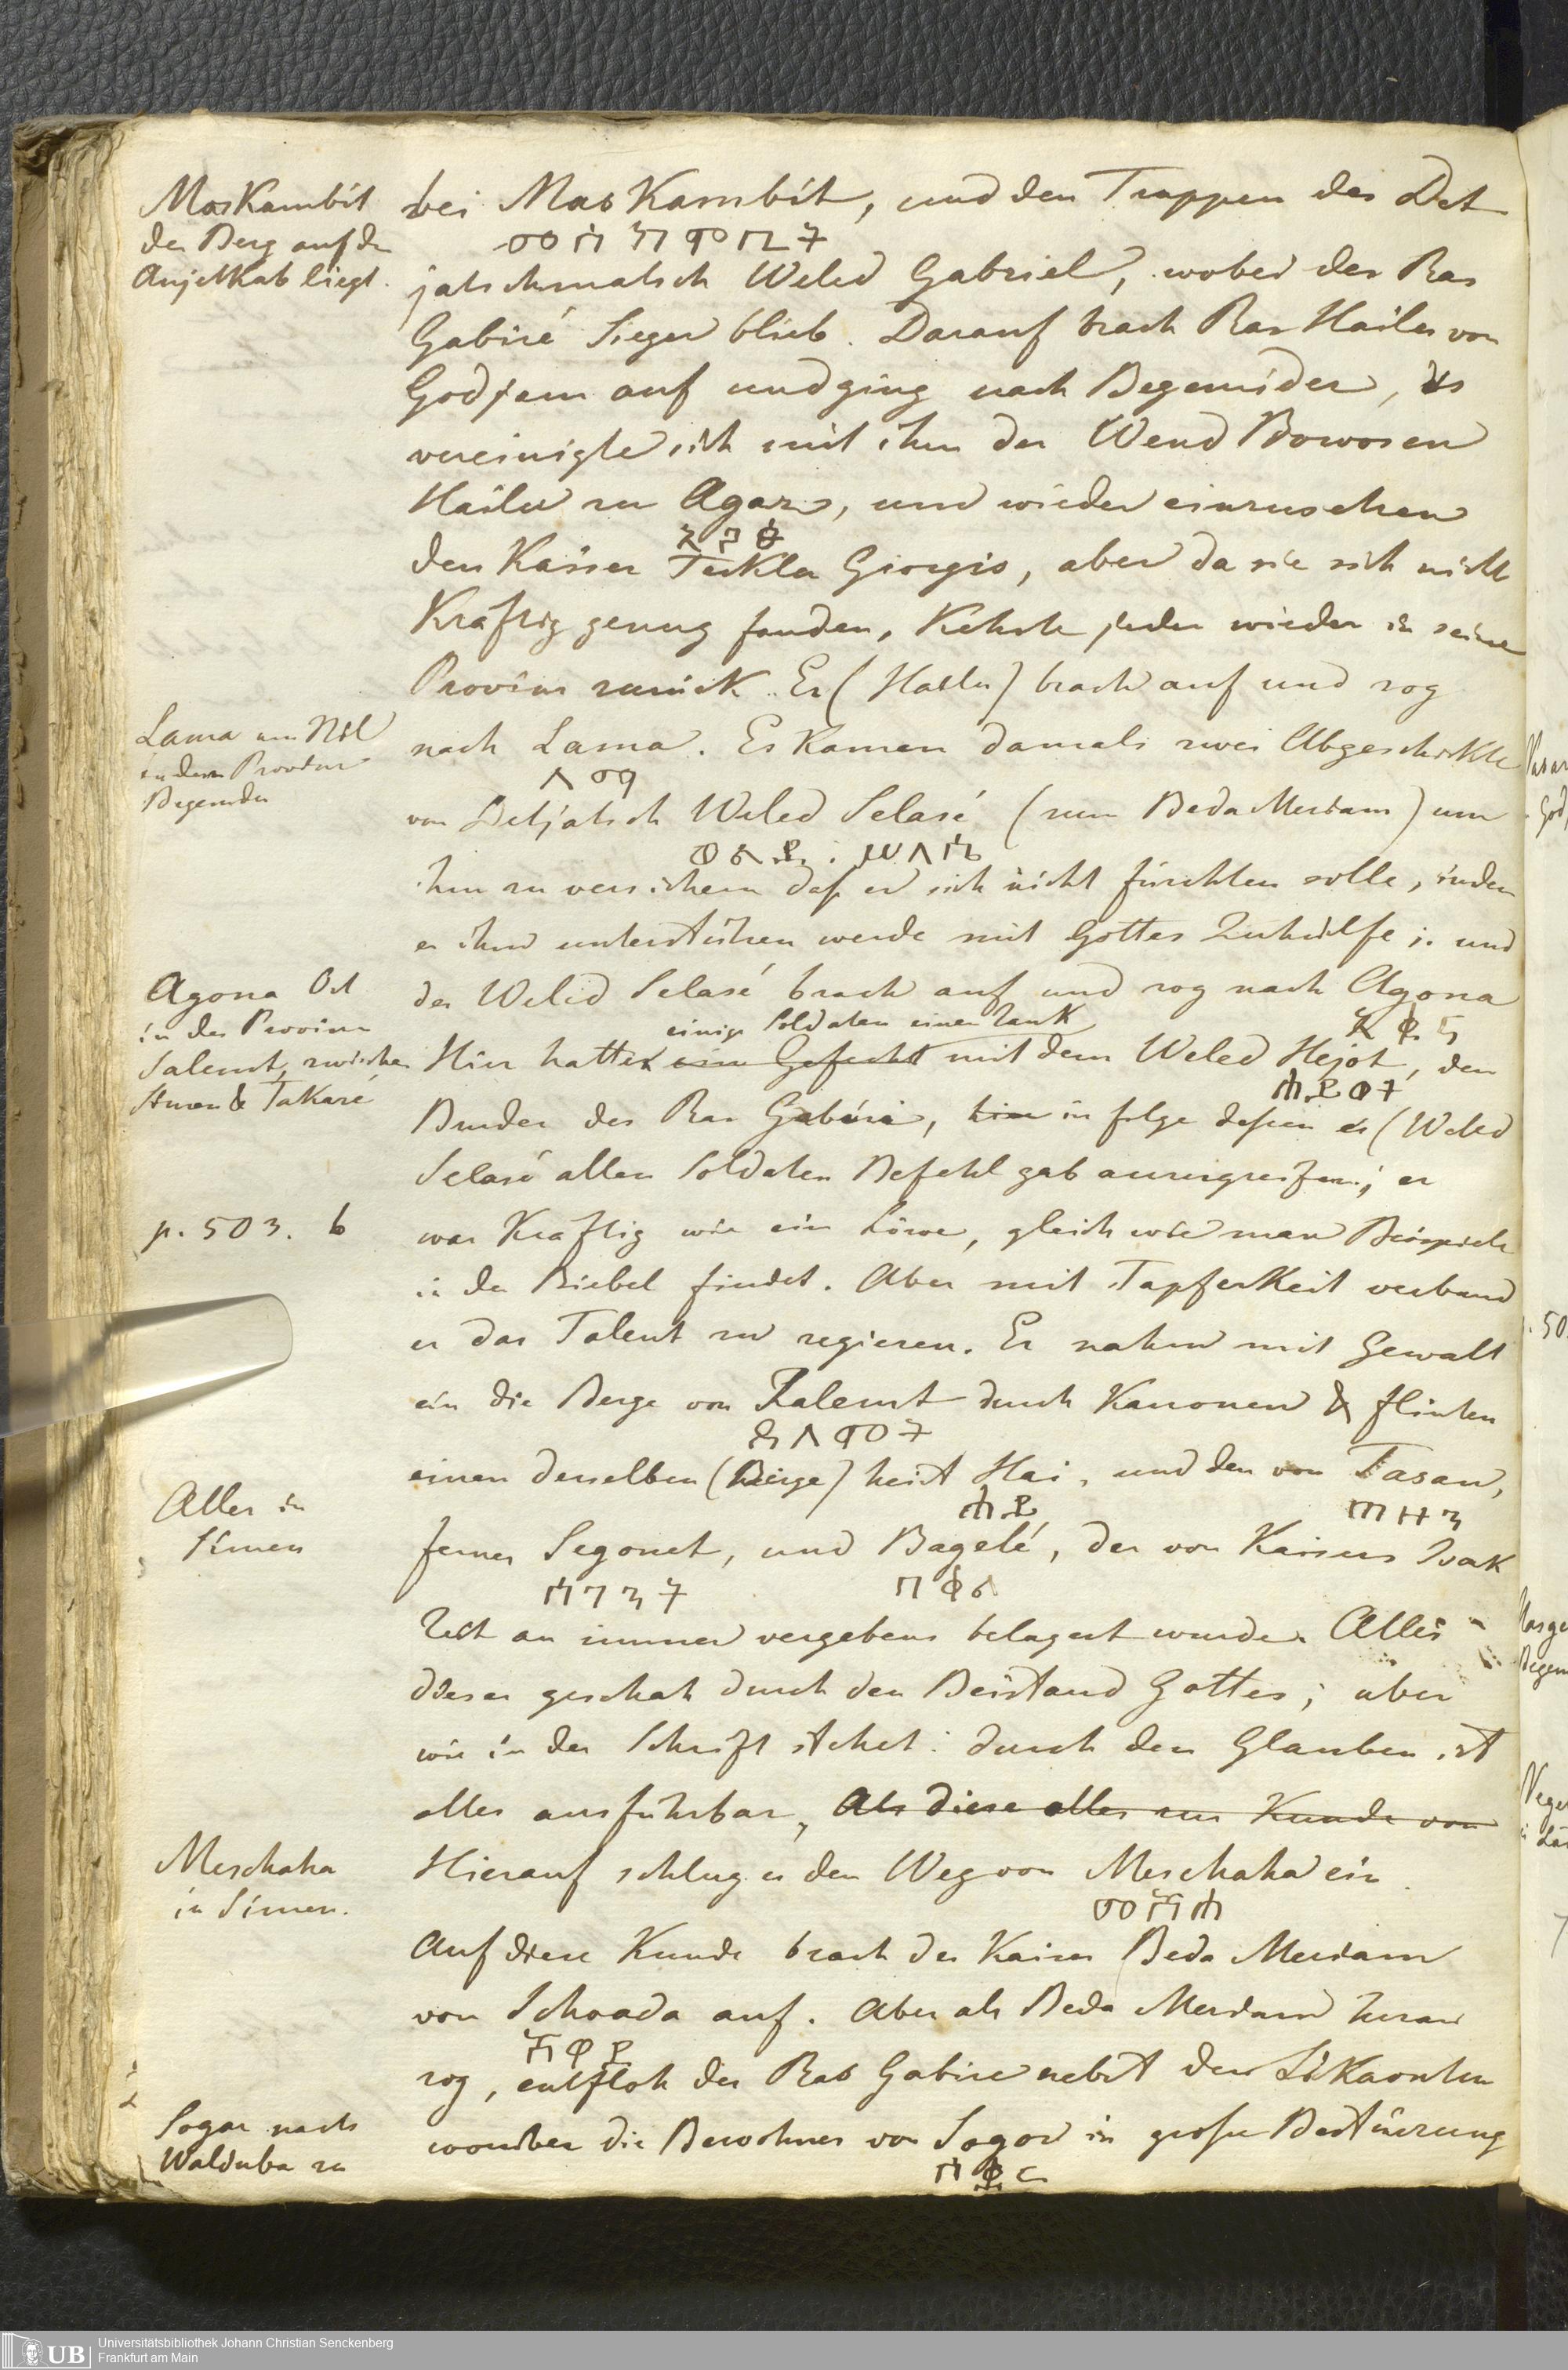 MasKambit
der Berg auf dem
Anjetkab liegt.
bei MasKambit, und den Truppen des Det
jatschmatsch Weled Gabriel, wobei der Ras
Gabiré Sieger blieb. Darauf brach Ras Hailu von
Godjam auf und ging nach Begemider, es
vereinigte sich mit ihm der Wend Bowosen
Hailu zu Agar, und wieder einzusehen
den Kaiser Tekla Giorgis, aber da sie sich nicht
Kräftig genug fanden, Kehrte jeder wieder in seine
Provinz zurück. Er (Hailu) brach auf und zog
Lama am Nil
in der Provinz
Begemder
nach Lama. Es Kamen damals zwei Abgeschickte
ላማ
von Detjatsch Weled Selasé (zum Beda Mariam) um
ሥላሴ
ihm zu versichern daß er sich nicht fürchten solle, indem
er ihm unterstützen werde mit Gottes Zuhülfe; und
Agona Ort
in der Provinz
Salemt, zwischen
Simen & TaKaré
der Weled Selasé brach auf und zog nach Agona
einige Soldaten einen Zank
Hier hatten ein Gefecht mit dem Weled Hejot, den
ሕይወት
Bruder des Ras Gabiré, in folge dessen er (Weled
Selasé allen Soldaten Befehl gab anzugreifen; er
p. 503. b
war Kräftig wie ein Löwe, gleich wie man Beispiele
in der Biebel findet. Aber mit Tapferkeit verband
er das Talent zu regieren. Er nahm mit Gewalt
ein die Berge von Zalemt durch Kanonen & flinten
ጻለምት
einen derselben (Berge) heist Hai, und den von Tasan,
ሐይ ጠዘን
Alles in
Simen
ferner Segonet, und Bagelé, der von Kaisers Isak
Zeit an immer vergebens belagert wurde. Alles
dieses geschah durch den Beistand Gottes; aber
wie in der Schrift stehet: durch den Glauben ist
alles ausführbar, Als diese alles zur Kunde von
Meschaha
in Simen.
Hierauf schlug er den Weg von Meschaha ein.
መሻሐ
Auf diese Kunde brach der Kaiser Beda Mariam
von Schoada auf. Aber als Beda Mariam heran
ሾዋዳ
zog, entfloh der Ras Gabire nebst den LiKaonten
Sogar nach
Walduba zu
worüber die Bewohner von Sogor in große Bestürzung
ሰቋር
Universitätsbibliothek Johann Christian Senckenberg
Frankfurt am Main
UB